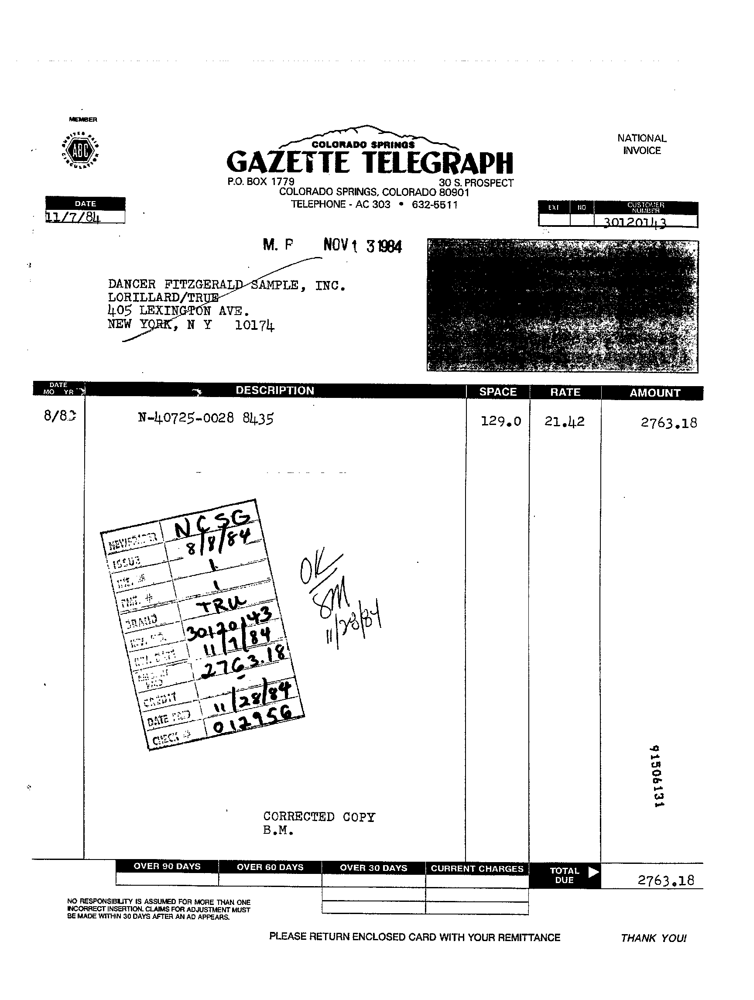 MEMBER
AUDITED PAID CIRCULATION
ABC
COLORADO SPRINGS
GAZETTE TELEGRAPH
P.O. BOX 1779 30 S. PROSPECT
COLORADO SPRINGS, COLORADO 80901
TELEPHONE - AC 303 • 632-5511
NATIONAL
INVOICE
DATE
11/7/84
EXT NO CUSTOMER NUMBER
30120143
M. P NOV 1 3 1984
DANCER FITZGERALD SAMPLE, INC.
LORILLARD/TRUE
405 LEXINGTON AVE.
NEW YORK, N Y 10174
DATE
MO YR DESCRIPTION SPACE RATE AMOUNT
8/8 N-40725-0028 8435 129.0 21.42 2763.18
NEWSPAPER NCSG
ISSUE 8/8/84
INS. # 1
PMT. # 1
BRAND TRU
INV. NO. 30120143
INV. DATE 11/7/84
AMOUNT PAID 2763.18
CREDIT -
DATE PAID 11/28/84
CHECK # 012956
OK
SM
11/28/84
91506131
CORRECTED COPY
B.M.
OVER 90 DAYS OVER 60 DAYS OVER 30 DAYS CURRENT CHARGES TOTAL DUE 2763.18
NO RESPONSIBILITY IS ASSUMED FOR MORE THAN ONE
INCORRECT INSERTION. CLAIMS FOR ADJUSTMENT MUST
BE MADE WITHIN 30 DAYS AFTER AN AD APPEARS.
PLEASE RETURN ENCLOSED CARD WITH YOUR REMITTANCE THANK YOU!